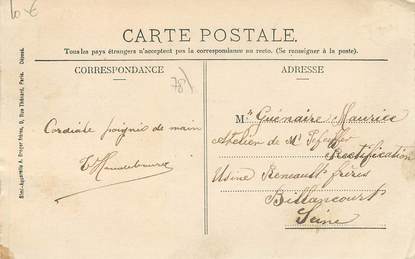 10 €
CARTE POSTALE.
Tous les pays étrangers n'acceptent pas la correspondance au recto. (Se renseigner à la poste).
CORRESPONDANCE
ADRESSE
78
Cordiale poignée de main
Mr Guénaire Maurice
Atelier de Mr
Rectification
Usine Renault frères
Billancourt
Seine
Simi-Aquarelle A. Breger Frères, 9, Rue Thénard, Paris. Déposé.